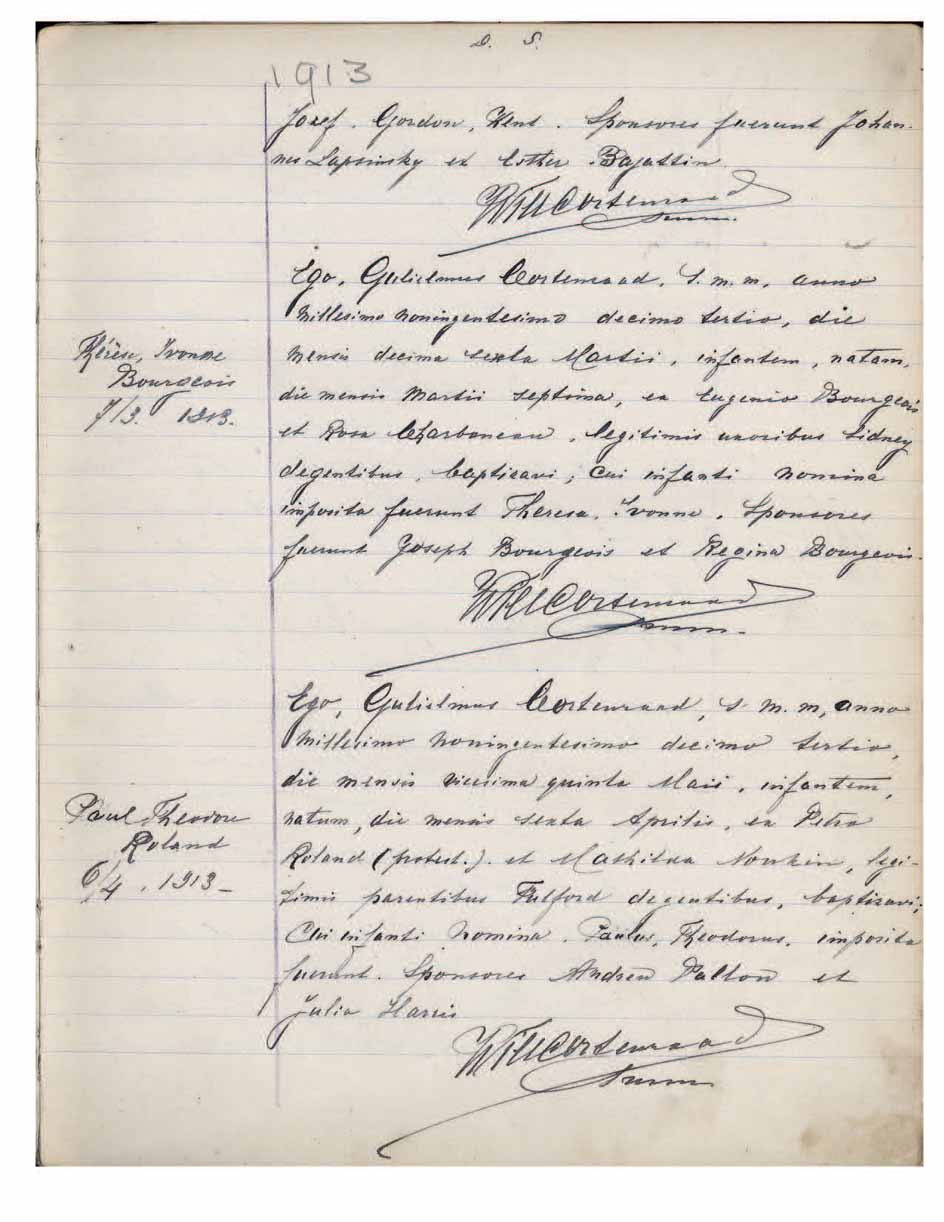 D. S.
1913
Josef. Gordon, Kent. Sponsores fuerunt Johan-
nes Lapsinsky et Esther Bajattin
WFHCortenraad
smm.
Ego, Gulielmus Cortenraad, S.m.m, anno
Millesimo noningentesimo decimo tertio, die
mensis decima sexta Martii, infantem, natam,
Thérèse, Ivonne
Bourgeois
7/3. 1913.
die mensis Martii septima, ex Eugenio Bourgeois
et Rosa Charboneau, legitimis uxoribus Sidney
degentibus, baptizavi; Cui infanti nomina
imposita fuerunt Theresa, Ivonne. Sponsores
fuerunt Joseph Bourgeois et Regina Bourgeois.
Cortenraad
smm.
Ego, Gulielmus Cortenraad, S m. m, anno
Millesimo noningentesimo decimo tertio,
die mensis vicesima quinta Maii, infantem,
Paul Theodore
Roland
6/4. 1913-
natum, die mensis sexta Aprilis, ex Petro
Roland (protest.). et Mathilda, legi-
timis parentibus Fulford degentibus, baptizavi;
Cui infanti nomina. Paulus, Theodorus, imposita
fuerunt. Sponsores Andrew Palton et
Julia Harris
Cortenraad
smm